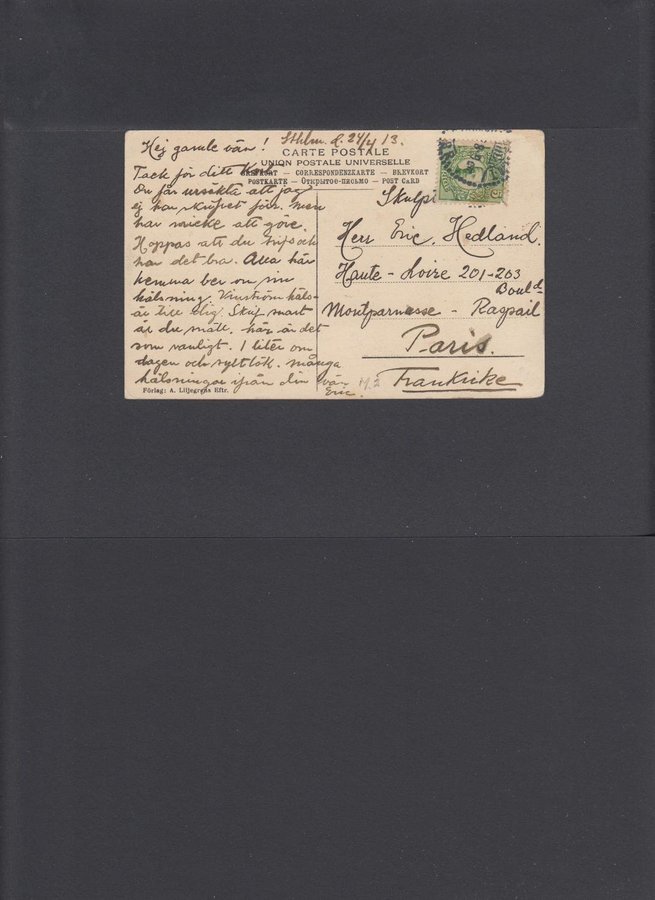 Hej gamle vän! Sthlm. d. 24/4 13.
CARTE POSTALE
UNION POSTALE UNIVERSELLE
CORRESPONDENZKARTE — BREVKORT
POSTKARTE — Открытое-письмо — POST CARD
Tack för ditt Kort.
Du får ursäkta att jag
ej har skrifvet förr. Men
har mycke att göre.
Hoppas att du trifs och
har det bra. Alla här
hemma ber om sin
hälsning. Vinström häls-
är till dig. Skrif snart
är du snäll. här är det
som vanligt. 1 liter om
dagen och syltlök. många
hälsningar ifrån din vän
Eric.
Förlag: A. Liljegrens Eftr.
5
Herr Eric. Hedland.
Haute-Loire 201-203
Bould
Montparnasse - Raspail
Paris.
Frankrike